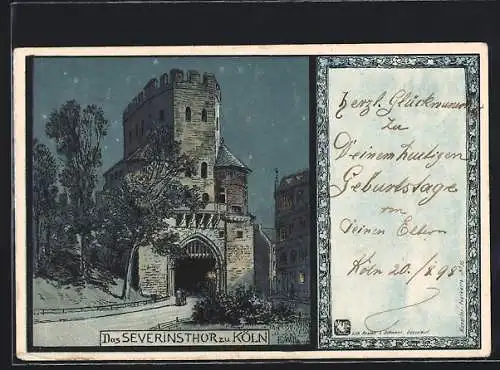 Das SEVERINSTHOR zu KÖLN
herzl. Glückwunsch
zu
Deinem heutigen
Geburtstage
von
Deinen Eltern
Köln 20./ 98